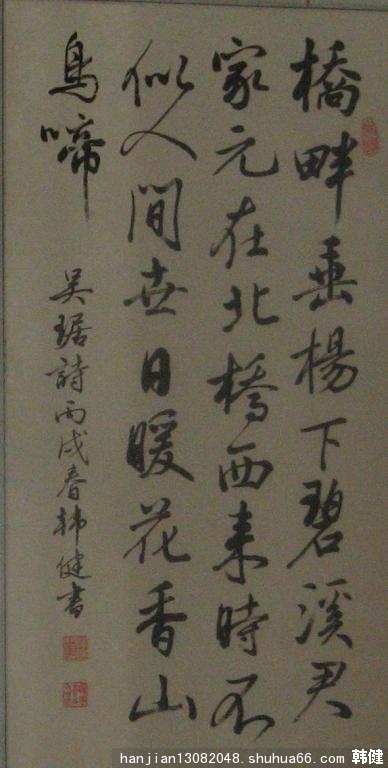 橋畔垂楊下碧溪君
家元在北橋西来時不
似人間世日暖花香山
鳥啼
吴琚詩丙戌春韩健書
hanjian13082048.shuhua66.com 韩健